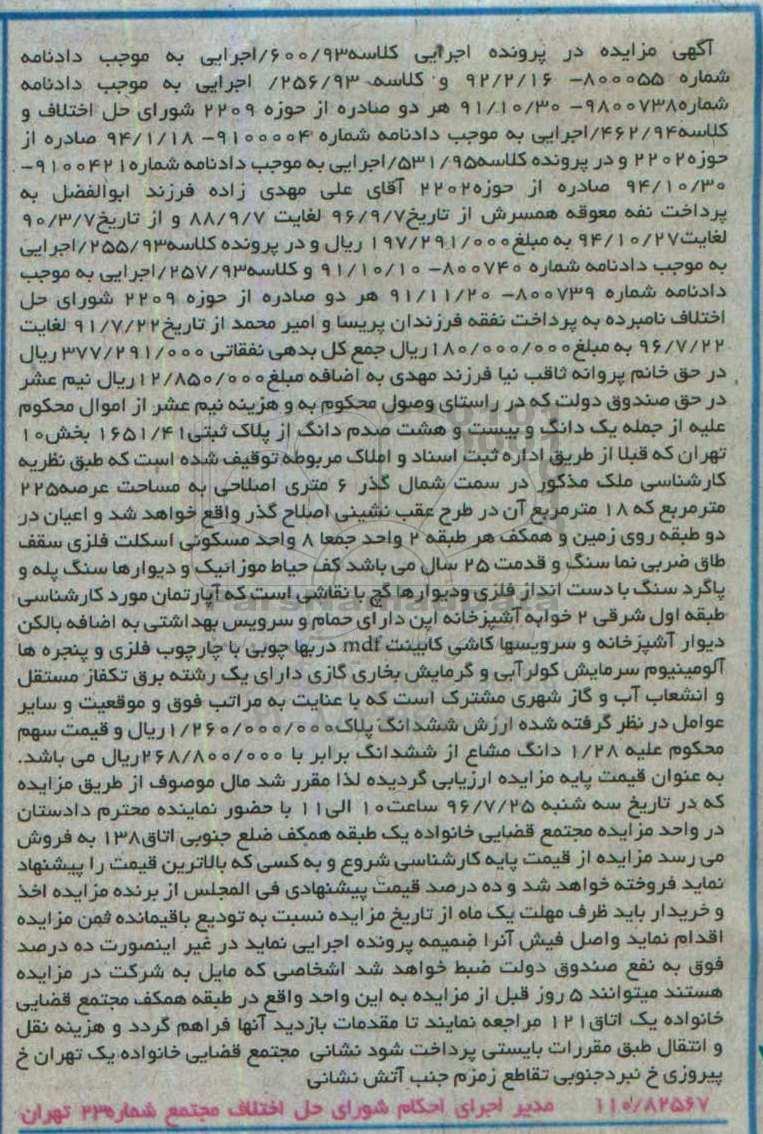 آگهی مزایده در پرونده اجرایی کلاسه۶۰۰/۹۳/اجرایی به موجب دادنامه
شماره ۸۰۰۰۵۵- ۹۲/۲/۱۶ و کلاسه ۲۵۶/۹۳/ اجرایی به موجب دادنامه
شماره۹۸۰۰۷۳۸- ۹۱/۱۰/۳۰ هر دو صادره از حوزه ۲۲۰۹ شورای حل اختلاف و
کلاسه۴۶۲/۹۴/اجرایی به موجب دادنامه شماره ۹۱۰۰۰۰۴- ۹۴/۱/۱۸ صادره از
حوزه۲۲۰۲ و در پرونده کلاسه۵۳۱/۹۵/اجرایی به موجب دادنامه شماره۹۱۰۰۴۲۱-
۹۴/۱۰/۳۰ صادره از حوزه۲۲۰۲ آقای علی مهدی زاده فرزند ابوالفضل به
پرداخت نفه معوقه همسرش از تاریخ۹۶/۹/۷ لغایت ۸۸/۹/۷ و از تاریخ۹۰/۳/۷
لغایت۹۴/۱۰/۲۷ به مبلغ۱۹۷/۲۹۱/۰۰۰ ریال و در پرونده کلاسه۲۵۵/۹۳/اجرایی
به موجب دادنامه شماره ۸۰۰۷۴۰- ۹۱/۱۰/۱۰ و کلاسه۲۵۷/۹۳/اجرایی به موجب
دادنامه شماره ۸۰۰۷۳۹- ۹۱/۱۱/۲۰ هر دو صادره از حوزه ۲۲۰۹ شورای حل
اختلاف نامبرده به پرداخت نفقه فرزندان پریسا و امیر محمد از تاریخ۹۱/۷/۲۲ لغایت
۹۶/۷/۲۲ به مبلغ۱۸۰/۰۰۰/۰۰۰ریال جمع کل بدهی نفقاتی ۳۷۷/۲۹۱/۰۰۰ ریال
در حق خانم پروانه ثاقب نیا فرزند مهدی به اضافه مبلغ۱۲/۸۵۰/۰۰۰ریال نیم عشر
در حق صندوق دولت که در راستای وصول محکوم به و هزینه نیم عشر از اموال محکوم
علیه از جمله یک دانگ و بیست و هشت صدم دانگ از پلاک ثبتی۱۶۵۱/۴۱ بخش۱۰
تهران که قبلا از طریق اداره ثبت اسناد و املاک مربوطه توقیف شده است که طبق نظریه
کارشناسی ملک مذکور در سمت شمال گذر ۶ متری اصلاحی به مساحت عرصه۲۲۵
مترمربع که ۱۸ مترمربع آن در طرح عقب نشینی اصلاح گذر واقع خواهد شد و اعیان در
دو طبقه روی زمین و همکف هر طبقه ۲ واحد جمعا ۸ واحد مسکونی اسکلت فلزی سقف
طاق ضربی نما سنگ و قدمت ۲۵ سال می باشد کف حیاط موزانیک و دیوارها سنگ پله و
پاگرد سنگ با دست انداز فلزی ودیوارها گچ با نقاشی است که آپارتمان مورد کارشناسی
طبقه اول شرقی ۲ خوابه آشپزخانه اپن دارای حمام و سرویس بهداشتی به اضافه بالکن
دیوار آشپزخانه و سرویسها کاشی کابینت mdf دربها چوبی با چارچوب فلزی و پنجره ها
آلومینیوم سرمایش کولرآبی و گرمایش بخاری گازی دارای یک رشته برق تکفاز مستقل
و انشعاب آب و گاز شهری مشترک است که با عنایت به مراتب فوق و موقعیت و سایر
عوامل در نظر گرفته شده ارزش ششدانگ پلاک۱/۲۶۰/۰۰۰/۰۰۰ریال و قیمت سهم
محکوم علیه ۱/۲۸ دانگ مشاع از ششدانگ برابر با ۲۶۸/۸۰۰/۰۰۰ریال می باشد.
به عنوان قیمت پایه مزایده ارزیابی گردیده لذا مقرر شد مال موصوف از طریق مزایده
که در تاریخ سه شنبه ۹۶/۷/۲۵ ساعت۱۰ الی۱۱ با حضور نماینده محترم دادستان
در واحد مزایده مجتمع قضایی خانواده یک طبقه همکف ضلع جنوبی اتاق۱۳۸ به فروش
می رسد مزایده از قیمت پایه کارشناسی شروع و به کسی که بالاترین قیمت را پیشنهاد
نماید فروخته خواهد شد و ده درصد قیمت پیشنهادی فی المجلس از برنده مزایده اخذ
و خریدار باید ظرف مهلت یک ماه از تاریخ مزایده نسبت به تودیع باقیمانده ثمن مزایده
اقدام نماید واصل فیش آنرا ضمیمه پرونده اجرایی نماید در غیر اینصورت ده درصد
فوق به نفع صندوق دولت ضبط خواهد شد اشخاصی که مایل به شرکت در مزایده
هستند میتوانند ۵ روز قبل از مزایده به این واحد واقع در طبقه همکف مجتمع قضایی
خانواده یک اتاق۱۲۱ مراجعه نمایند تا مقدمات بازدید آنها فراهم گردد و هزینه نقل
و انتقال طبق مقررات بایستی پرداخت شود نشانی مجتمع قضایی خانواده یک تهران خ
پیروزی خ نبردجنوبی تقاطع زمزم جنب آتش نشانی
۱۱۰/۸۲۵۶۷ مدیر اجرای احکام شورای حل اختلاف مجتمع شماره۲۳ تهران